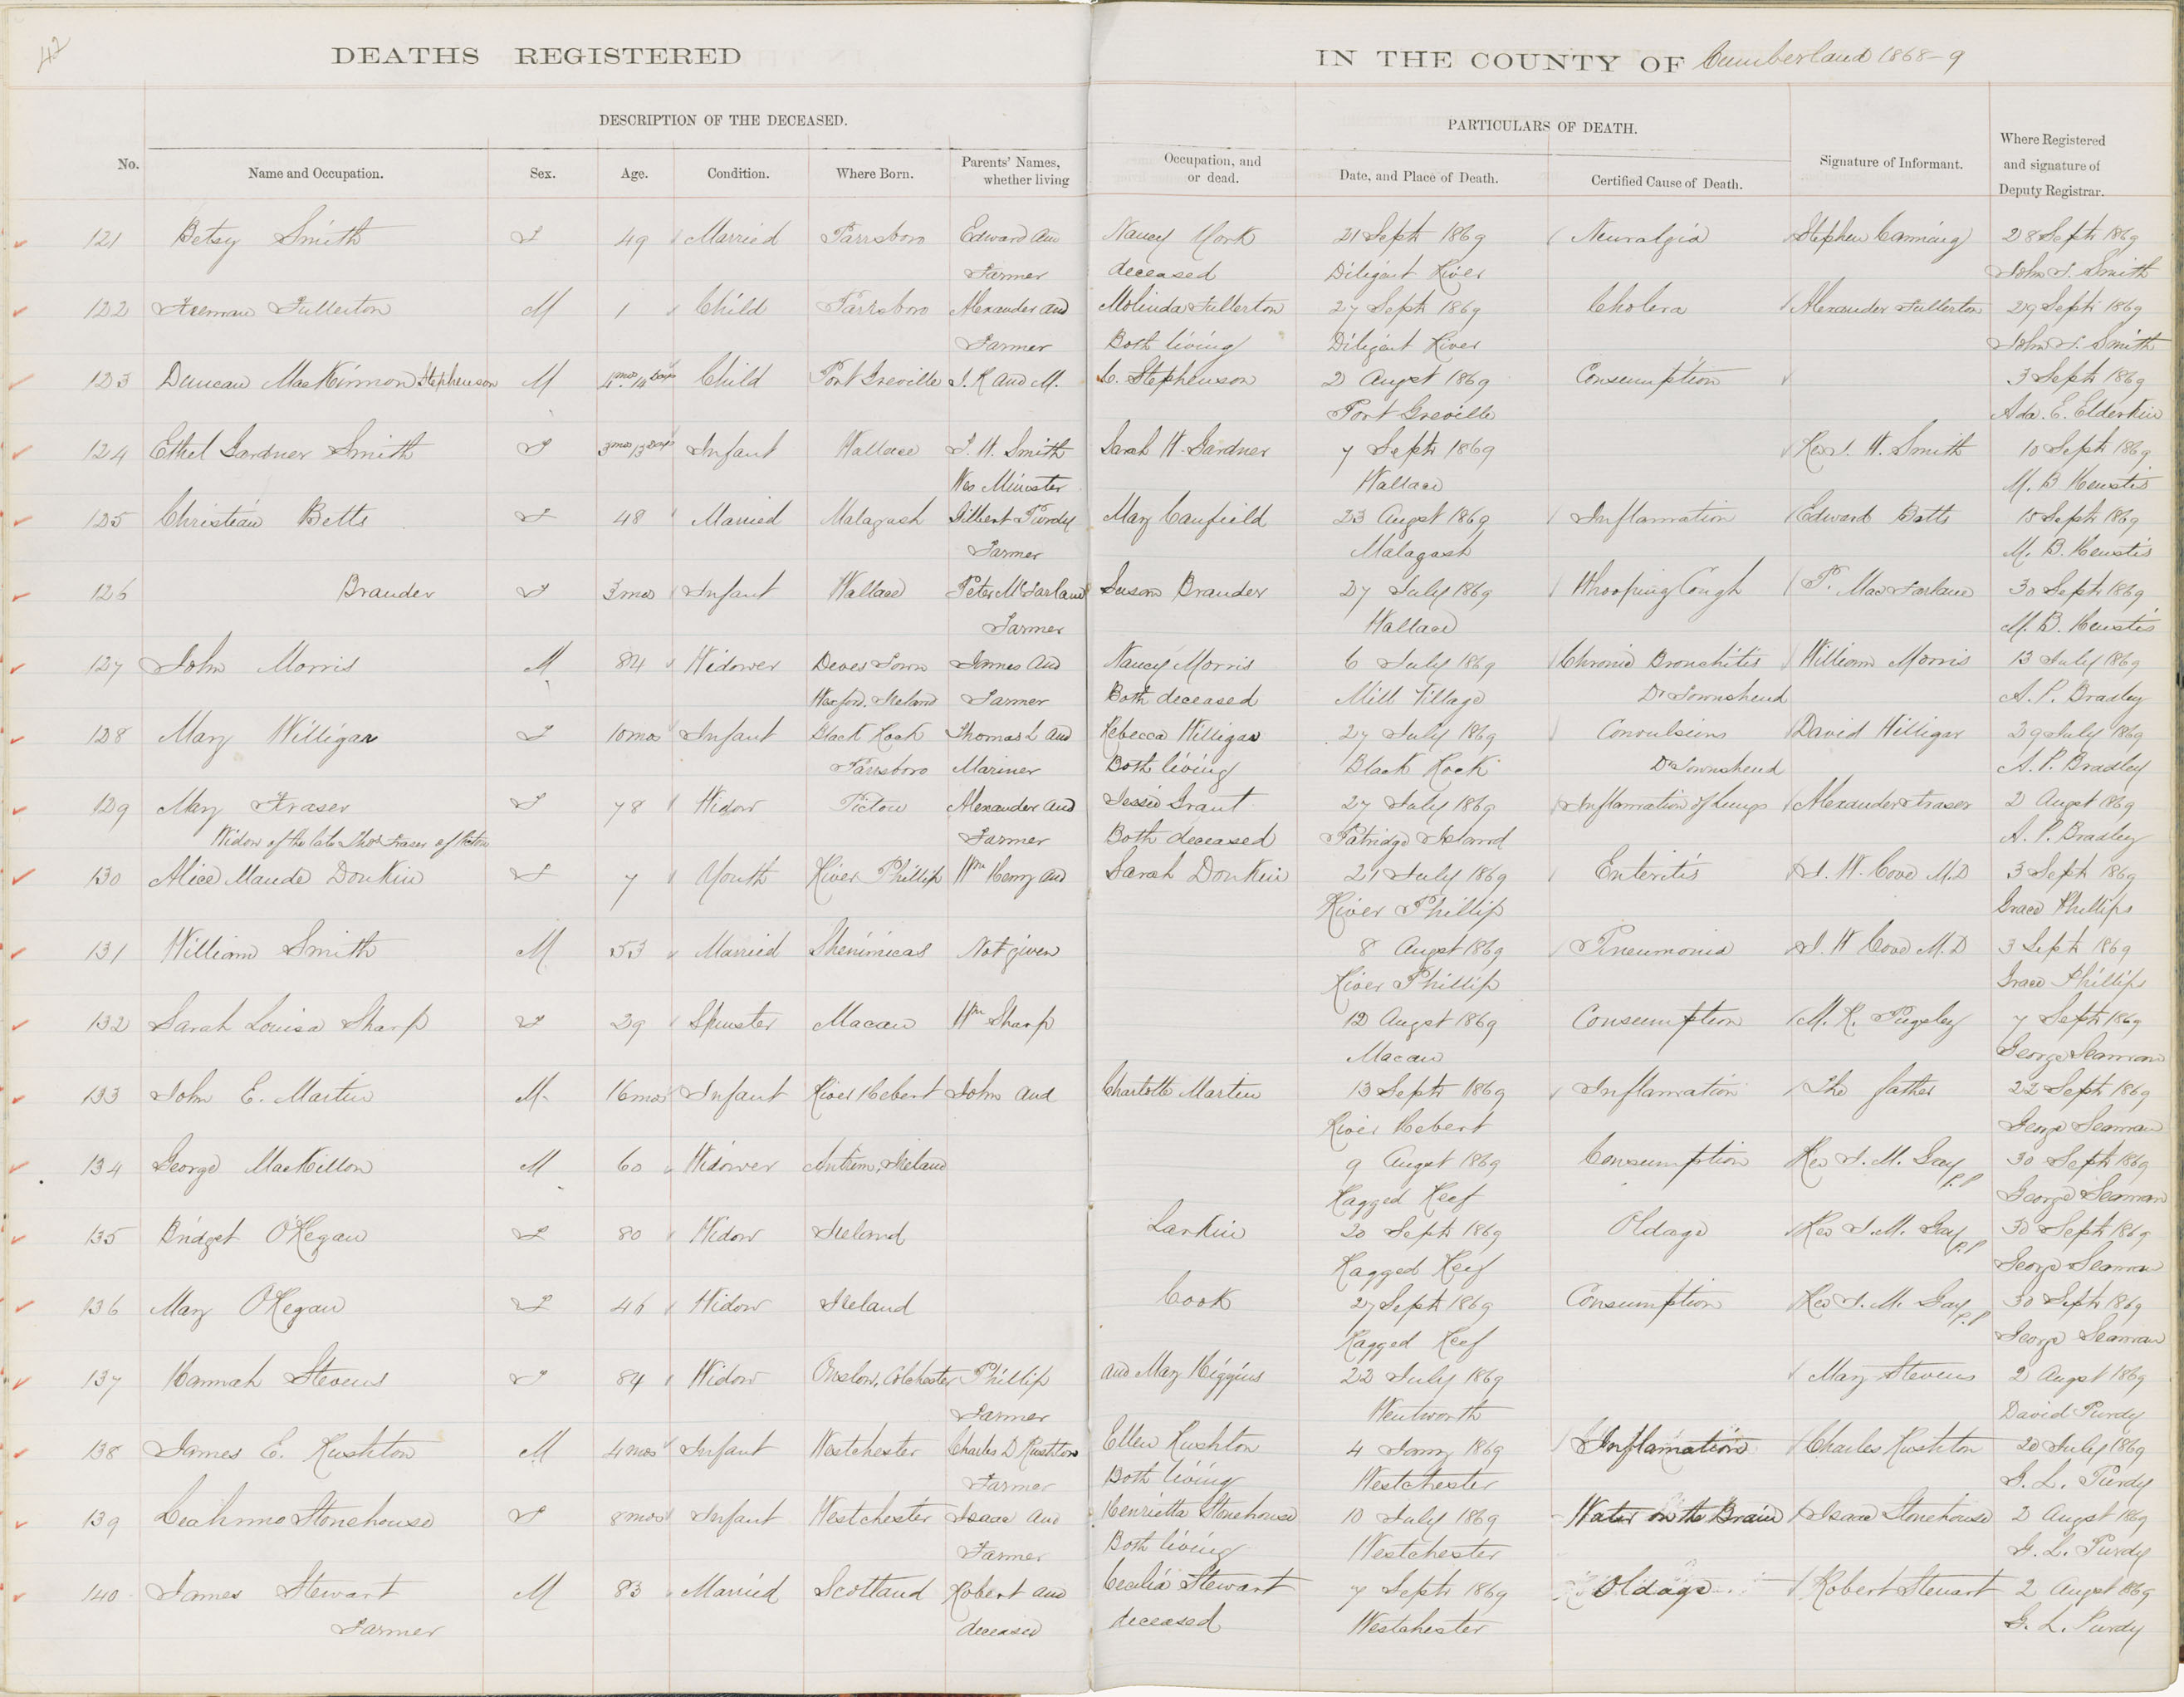 42
DEATHS REGISTERED IN THE COUNTY OF Cumberland 1868-9
DESCRIPTION OF THE DECEASED. PARTICULARS OF DEATH.
No. Name and Occupation. Sex. Age. Condition. Where Born. Parents' Names, whether living Occupation, and or dead. Date, and Place of Death. Certified Cause of Death. Signature of Informant. Where Registered and signature of Deputy Registrar.
121 Betsy Smith F 49 Married Parrsboro Edward and Nancy York 21 Sept 1869 Neuralgia Stephen Canning 28 Sept 1869
Farmer deceased Diligent River John S. Smith
122 Freeman Fullerton M 1 Child Parrsboro Alexander and Molinda Fullerton 27 Sept 1869 Cholera Alexander Fullerton 29 Sept 1869
Farmer Both living Diligent River John S. Smith
123 Duncan MacKinnon Stephenson M 4 mos 14 Days Child Port Greville J. R and M. C. Stephenson 2 Augst 1869 Consumption 3 Sept 1869
Port Greville Ada. E. Elderkin
124 Ethel Gardner Smith F 3 mos 13 Days Infant Wallace T. W. Smith Sarah W. Gardner 7 Sept 1869 Rev T. W. Smith 10 Sept 1869
Wes Minister Wallace M. B. Heustis
125 Christian Betts F 48 Married Malagash Gilbert Purdy Mary Canfield 23 Augst 1869 Inflamation Edward Betts 15 Sept 1869
Farmer Malagash M. B. Heustis
126 Brander F 3 mos Infant Wallace Peter McFarland Susan Brander 27 July 1869 Whooping Cough P. MacFarlane 30 Sept 1869
Farmer Wallace M. B. Heustis
127 John Morris M 84 Widower Deves Town James and Nancy Morris 6 July 1869 Chronic Bronchitis William Morris 13 July 1869
Wexford, Ireland Farmer Both deceased Mill Village Dr Townshend A. P. Bradley
128 Mary Willigar F 10 mos Infant Black Rock Thomas L and Rebecca Willigar 27 July 1869 Convulsions David Willigar 29 July 1869
Parrsboro Mariner Both living Black Rock Dr Townshend A. P. Bradley
129 Mary Fraser F 78 Widow Pictou Alexander and Jessie Grant 27 July 1869 Inflamation of Lungs Alexander Fraser 2 Augst 1869
Widow of the late Thos Fraser of Pictou Farmer Both deceased Patridge Island A. P. Bradley
130 Alice Maude Donkin F 7 Youth River Phillip Wm Henry and Sarah Donkin 21 July 1869 Enteritis J. W. Cove M.D 3 Sept 1869
River Phillip Grace Phillips
131 William Smith M 53 Married Shenimicas Not given 8 Augst 1869 Pneumonia J. W Cove M.D 3 Sept 1869
River Phillip Grace Phillips
132 Sarah Louisa Sharp F 29 Spinster Macan Wm Sharp 12 Augst 1869 Consumption M. R. Pugsley 7 Sept 1869
Macan George Seaman
133 John E. Martin M. 16 mos Infant River Hebert John and Charlotte Martin 13 Sept 1869 Inflamation The father 22 Sept 1869
River Hebert George Seaman
134 George MacKillon M 60 Widower Antrim, Ireland 9 Augst 1869 Consumption Rev T. M. Gay P.P 30 Sept 1869
Ragged Reef George Seaman
135 Bridget O'Regan F 80 Widow Ireland Larkin 20 Sept 1869 Oldage Rev T. M. Gay P.P 30 Sept 1869
Ragged Reef George Seaman
136 Mary O'Regan F 46 Widow Ireland Cook 27 Sept 1869 Consumption Rev T. M. Gay P.P 30 Sept 1869
Ragged Reef George Seaman
137 Hannah Stevens F 84 Widow Onslow, Colchester Phillip and Mary Higgins 22 July 1869 Mary Stevens 2 Augst 1869
Farmer Wentworth David Purdy
138 James E. Rushton M 4 mos Infant Westchester Charles D Rushton Ellen Rushton 4 Jany 1869 Inflamation Charles Rushton 20 July 1869
Farmer Both living Westchester G. L. Purdy
139 Stonehouse F 8 mos Infant Westchester Isaac and Henrietta Stonehouse 10 July 1869 Water on the Brain Isaac Stonehouse 2 Augst 1869
Farmer Both living Westchester G. L. Purdy
140 James Stewart M 83 Married Scotland Robert and Cecilia Stewart 7 Sept 1869 Oldage Robert Stewart 2 Augst 1869
Farmer deceased deceased Westchester G. L. Purdy